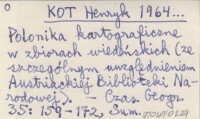 KOT Henryk 1964...
Polonika kartograficzne
w zbiorach wiedeńskich (ze
szczególnym uwzględnieniem
Austriackiej Biblioteki Na-
rodowej). Czas. Geogr.
35: 159-172, Sum.